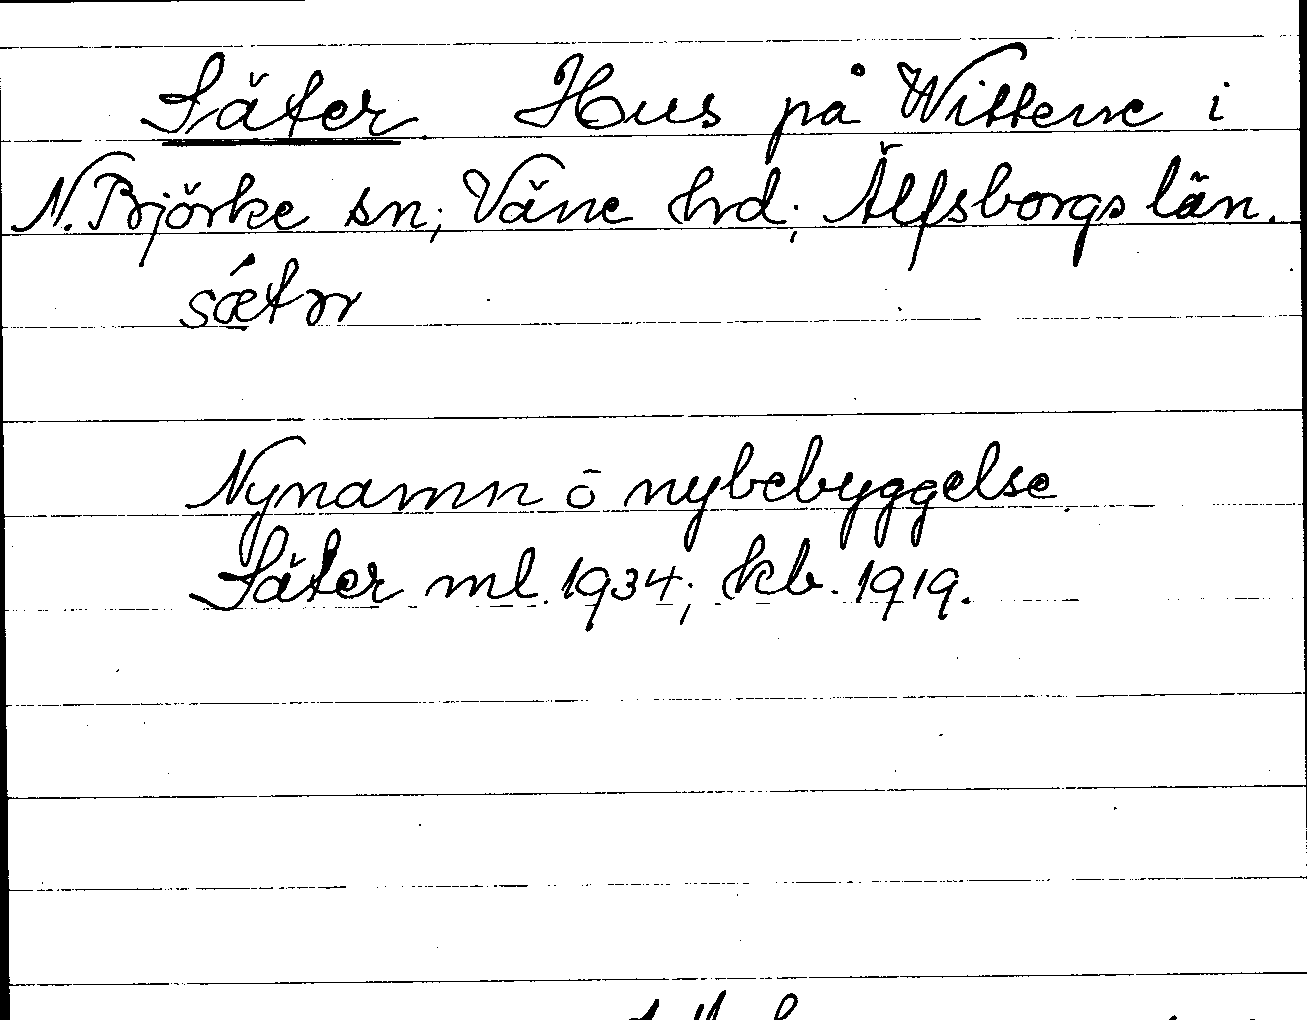 Säter. Hus på Wittene i
N. Björke sn; Väne hrd; Älfsborgs län.
Nynamn o nybebyggelse.
Säter ml. 1934; kb. 1919.